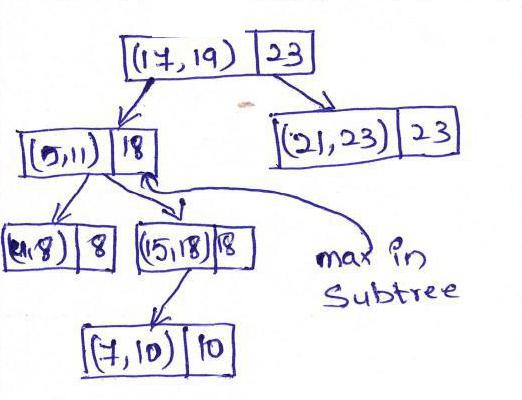 (17,19) 23
(5,11) 18
(21,23) 23
(4,8) 8
(15,18) 18
max in
Subtree
(7,10) 10